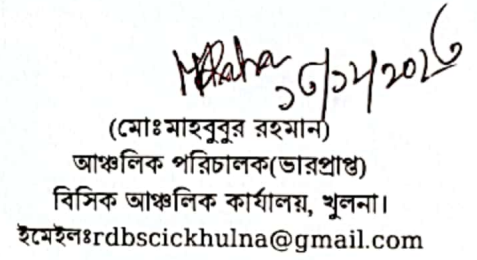 (মোঃমাহবুবুর রহমান)
আঞ্চলিক পরিচালক(ভারপ্রাপ্ত)
বিসিক আঞ্চলিক কার্যালয়, খুলনা।
ইমেইলঃrdbscickhulna@gmail.com